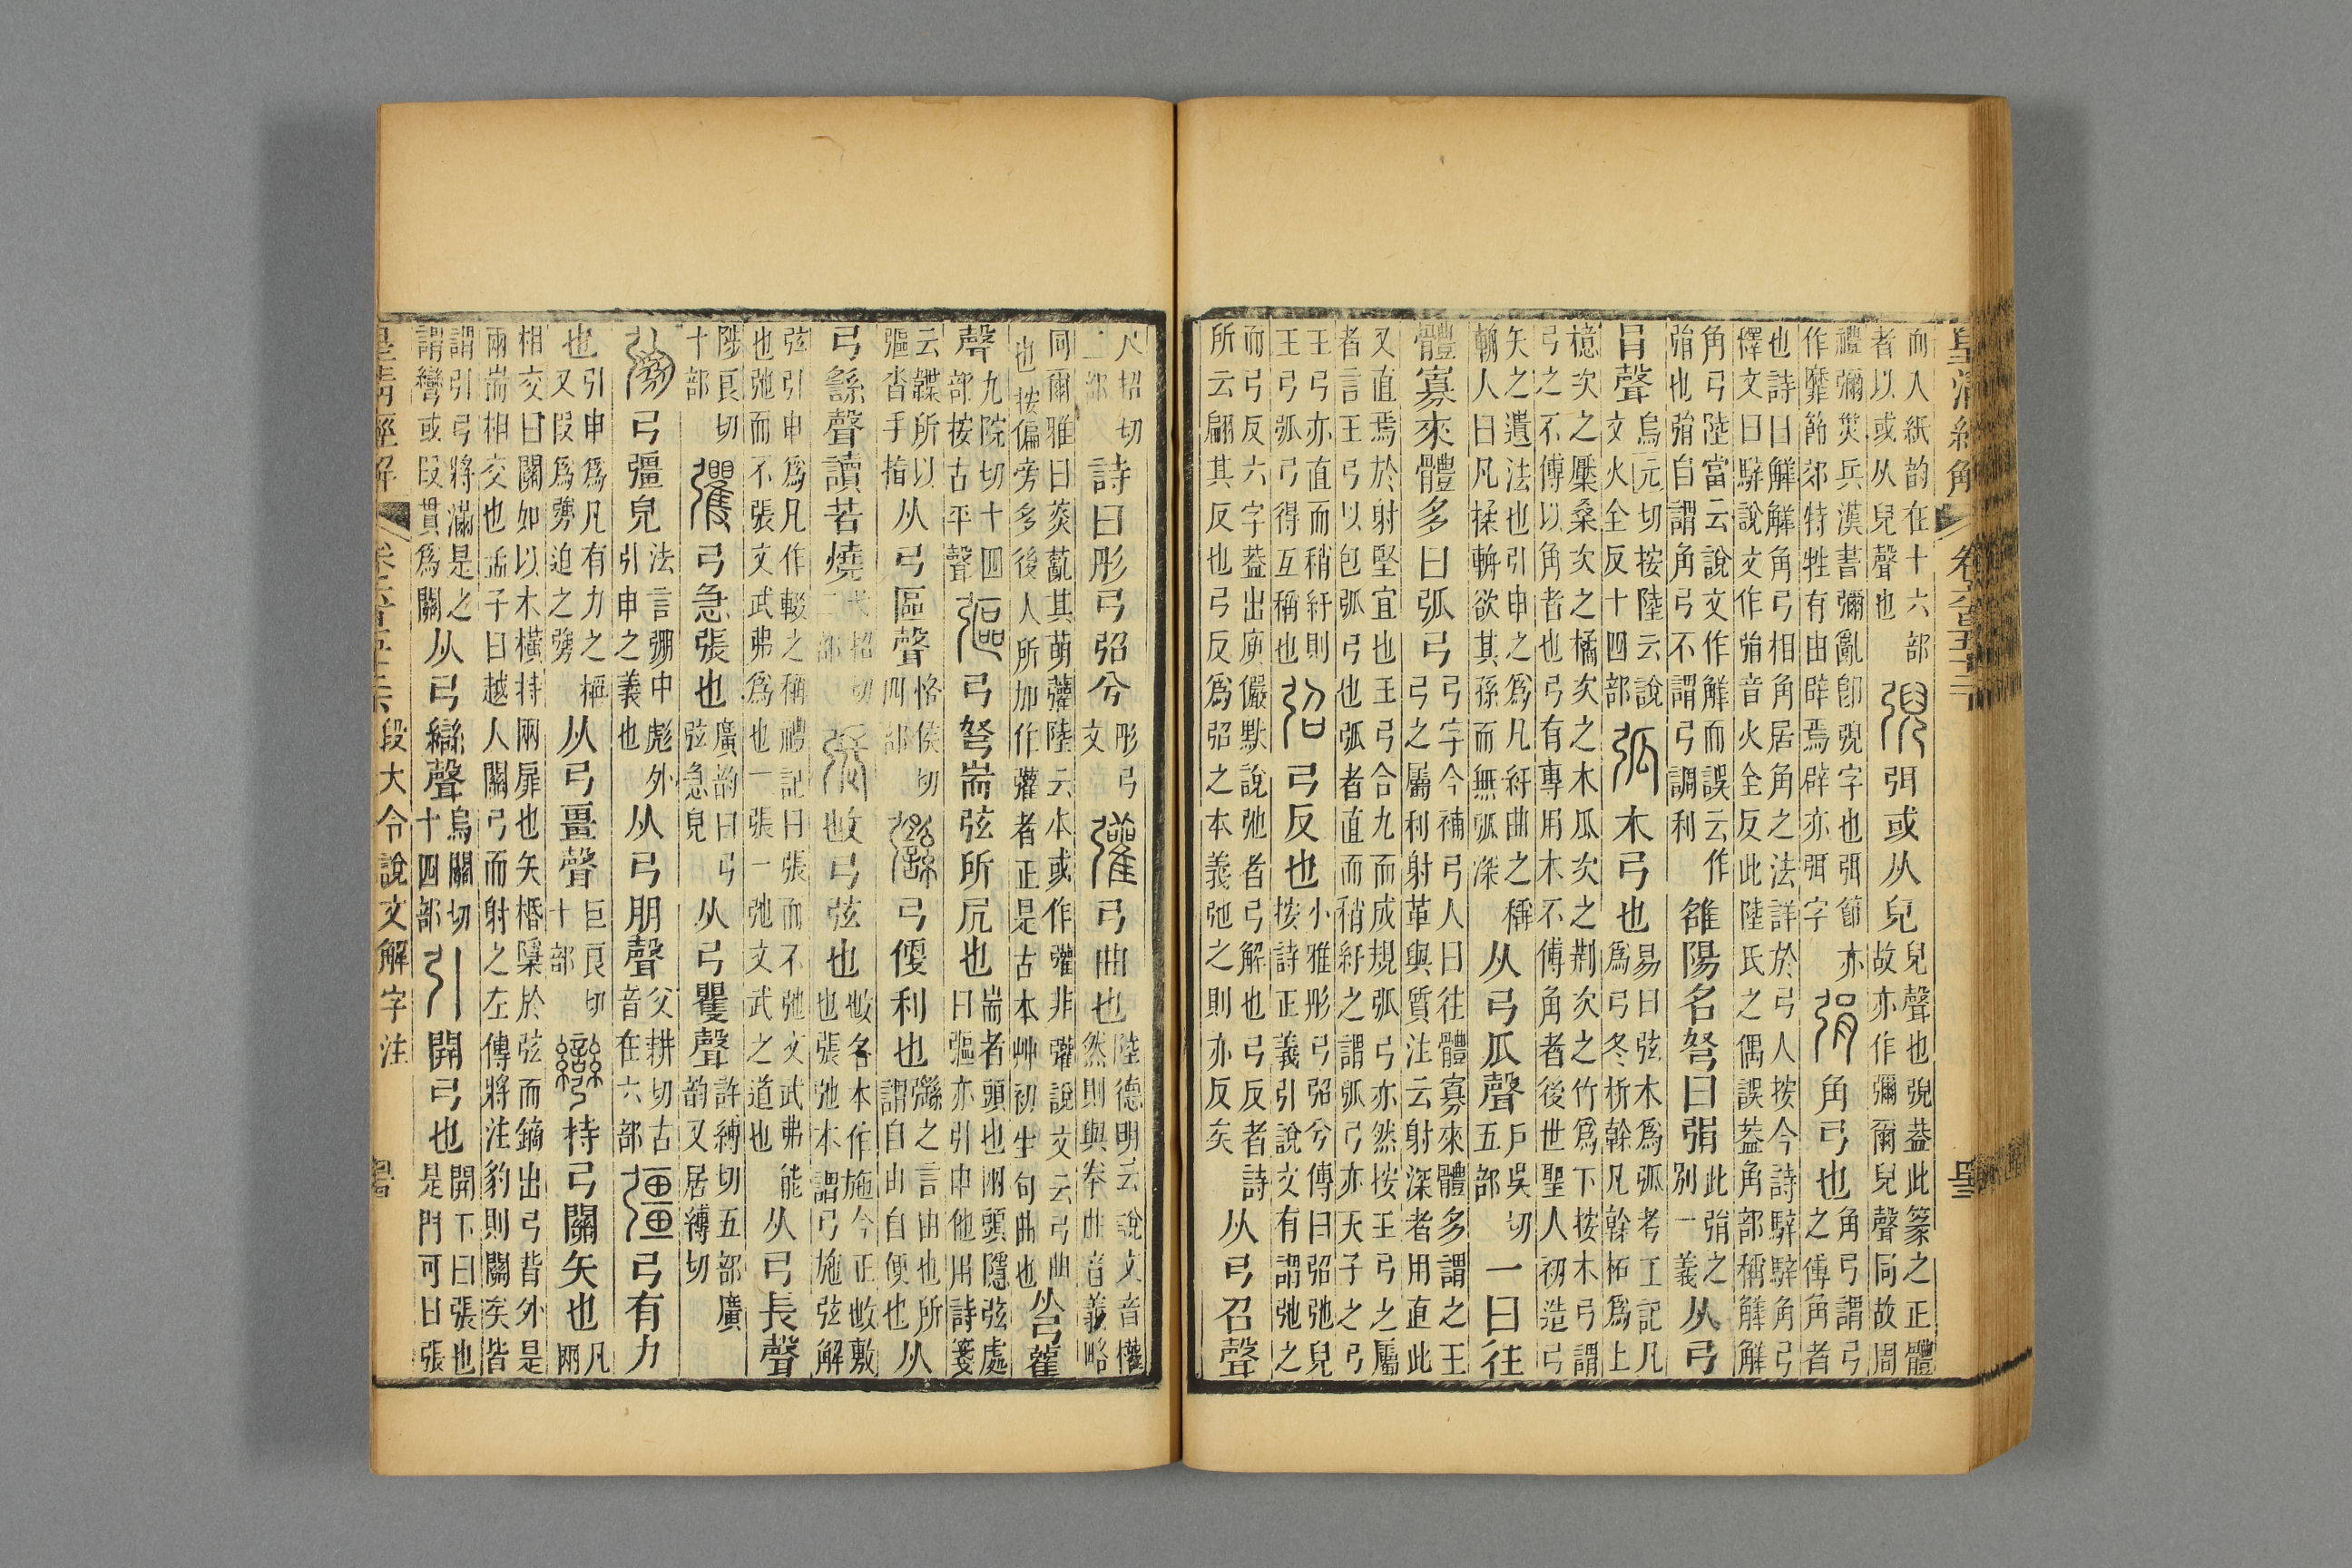 皇清經解 卷六百五十二
而入紙韵在十六部者以或从兒聲也𢏏弭或从兒兒聲也𢏏葢此篆之正體故亦作彌爾兒聲同故周
禮彌烖兵漢書彌亂卽𢏏字也弭節亦作靡節郊特牲有由辟焉辟亦弭字弲角弓也角弓謂弓之傅角者
也詩曰觲觲角弓相角居角之法詳於弓人按今詩騂騂角弓釋文曰騂說文作弲音火全反此陸氏之偶誤葢角部稱觲觲
角弓陸當云說文作觲而誤云作弲也弲自謂角弓不謂弓調利雒陽名弩曰弲此弲之別一義从弓
肙聲烏元切按陸云說文火全反十四部弧木弓也易曰弦木爲弧考工記凡爲弓冬析榦凡榦柘爲上
檍次之檿桑次之橘次之木瓜次之荆次之竹爲下按木弓謂弓之不傅以角者也弓有專用木不傅角者後世聖人初造弓
矢之遺法也引申之爲凡紆曲之稱輈人曰凡揉輈欲其孫而無弧深从弓瓜聲戶吳切五部一曰往
體寡來體多曰弧弓弓字今補弓人曰往體寡來體多謂之王弓之屬利射革與質注云射深者用直此
又直焉於射堅宜也王弓合九而成規弧弓亦然按王弓之屬者言王弓以包弧弓也弧者直而稍紆之謂弧弓亦天子之弓
王弓亦直而稍紆則王弓弧弓得互稱也弨弓反也小雅彤弓弨兮傳曰弨弛皃按詩正義引說文有謂弛之
而弓反六字葢出庾儼默說弛者弓解也弓反者詩所云翩其反也弓反爲弨之本義弛之則亦反矣从弓召聲
尺招切二部詩曰彤弓弨兮彤弓文弓曲也陸德明云說文音權然則與拳曲音義略
同爾雅曰菼薍其萌虇陸云本或作虇非虇說文云弓曲也按偏旁多後人所加作虇者正是古本艸初生句曲也从弓雚
聲九院切十四部按古平聲彄弓弩耑弦所凥也耑者頭也兩頭隱弦處曰彄亦引申他用詩箋
云韘所以彄沓手指从弓區聲恪侯切四部弓便利也䌛之言由也所謂自由自便也从
弓䌛聲讀若燒弋招切二部張㢮弓弦也㢮各本作施今正㢮敷也張弛本謂弓施弦解
弦引申爲凡作輟之稱禮記曰張而不弛文武弗能也弛而不張文武弗爲也一張一弛文武之道也从弓長聲
陟良切十部彏弓急張也廣韵曰弓弦急皃从弓矍聲許縛切五部廣韵又居縛切
弸弓彊皃法言弸中彪外引申之義也从弓朋聲父耕切古音在六部彊弓有力
也引申爲凡有力之稱又叚爲勥迫之勥从弓畺聲巨良切十部彎持弓關矢也凡兩
相交曰關如以木橫持兩扉也矢桰檃於弦而鏑出弓背外是兩耑相交也孟子曰越人關弓而射之左傳將注豹則關矣皆
謂引弓將滿是之謂彎或叚貫爲關从弓䜌聲烏關切十四部引開弓也開下曰張也是門可曰張
皇清經解 卷六百五十二 段大令說文解字注